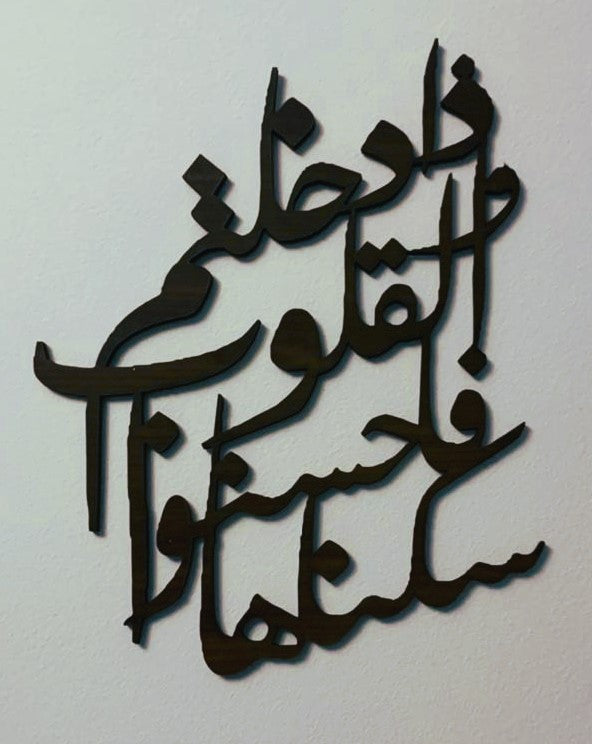 واذا دخلتم
القلوب
فاحسنوا
سكناها